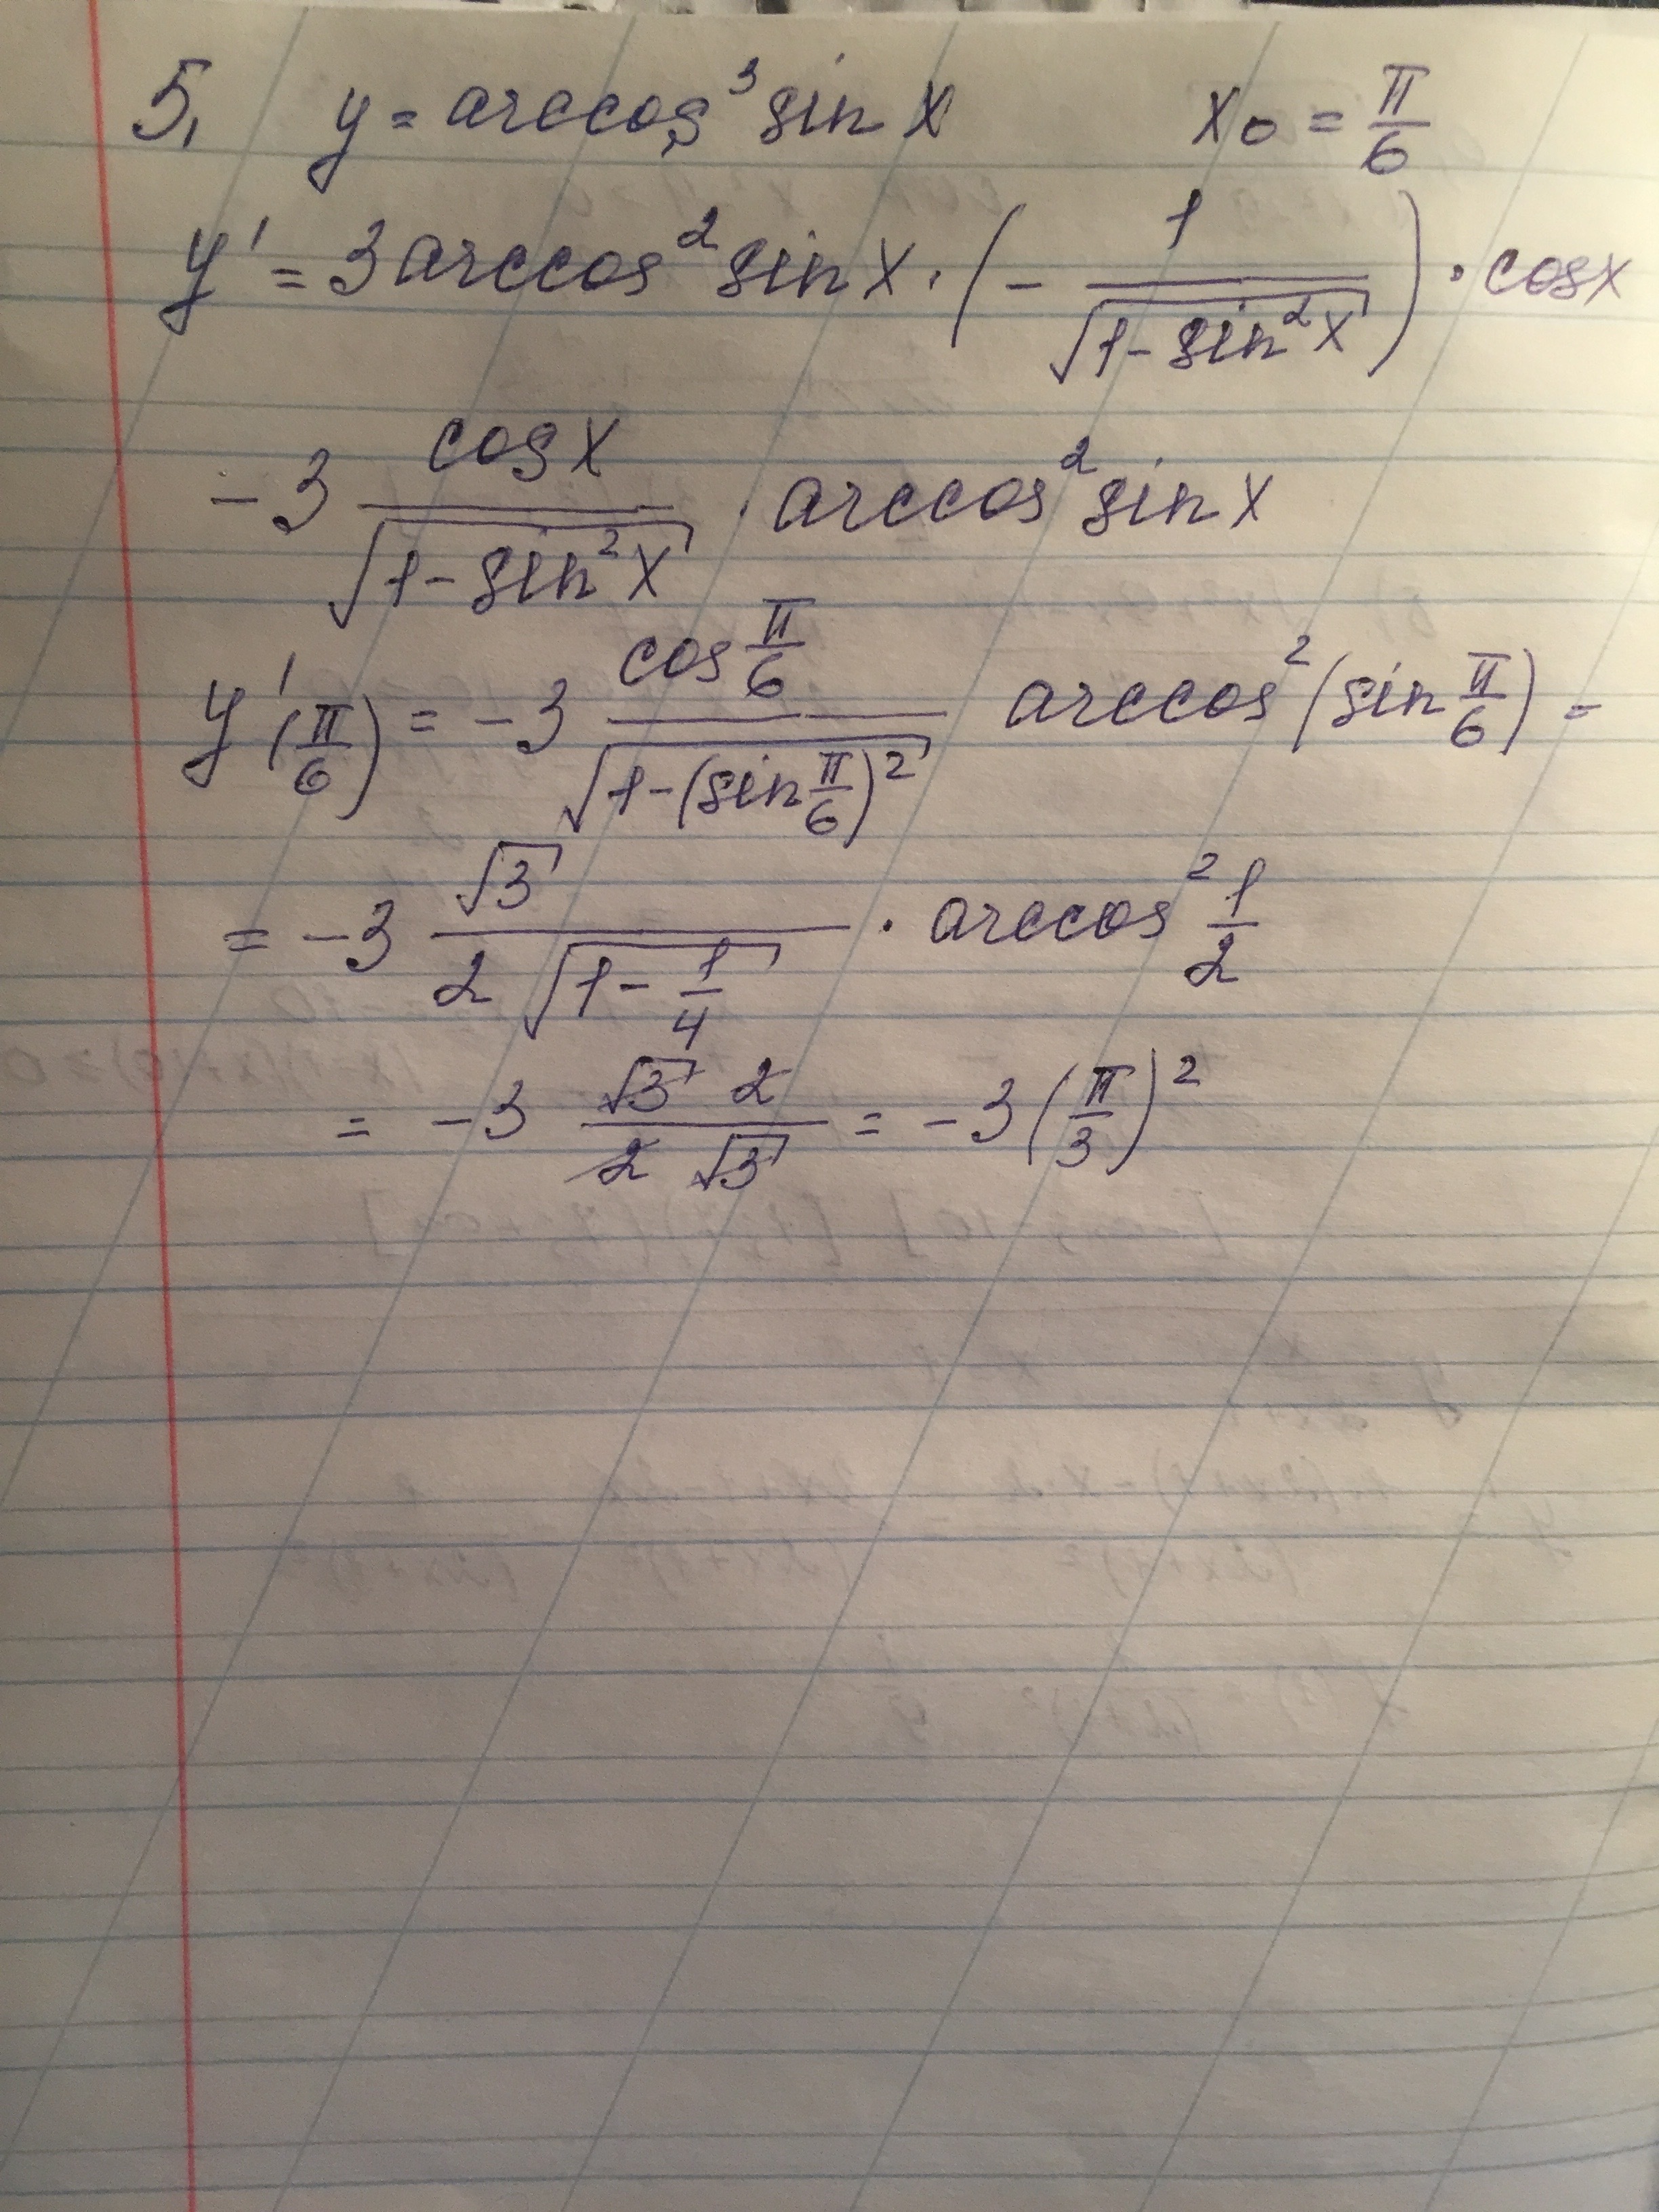 5. y = arccos³ sin x x₀ = π/6
y' = 3 arccos² sin x · (- 1/√(1-sin²x)) · cos x
-3 cos x/√(1-sin²x) · arccos² sin x
y'(π/6) = -3 cos π/6 / √(1-(sin π/6)²) arccos² (sin π/6) =
= -3 √3 / (2 √(1- 1/4)) · arccos² 1/2
= -3 (√3 2)/(2 √3) = -3 (π/3)²